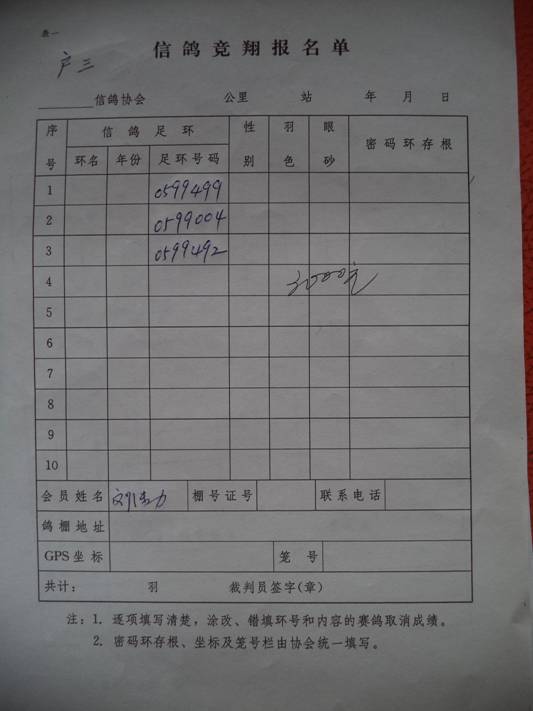 表一
信鸽竞翔报名单
户三
信鸽协会 公里 站 年 月 日
序号 信鸽足环 性别 羽色 眼砂 密码环存根
环名 年份 足环号码
1 0599499
2 0599004
3 0599492
4 3000元
5
6
7
8
9
10
会员姓名 棚号证号 联系电话
鸽棚地址
GPS坐标 笼号
共计: 羽 裁判员签字(章)
注:1. 逐项填写清楚,涂改、错填环号和内容的赛鸽取消成绩。
2. 密码环存根、坐标及笼号栏由协会统一填写。